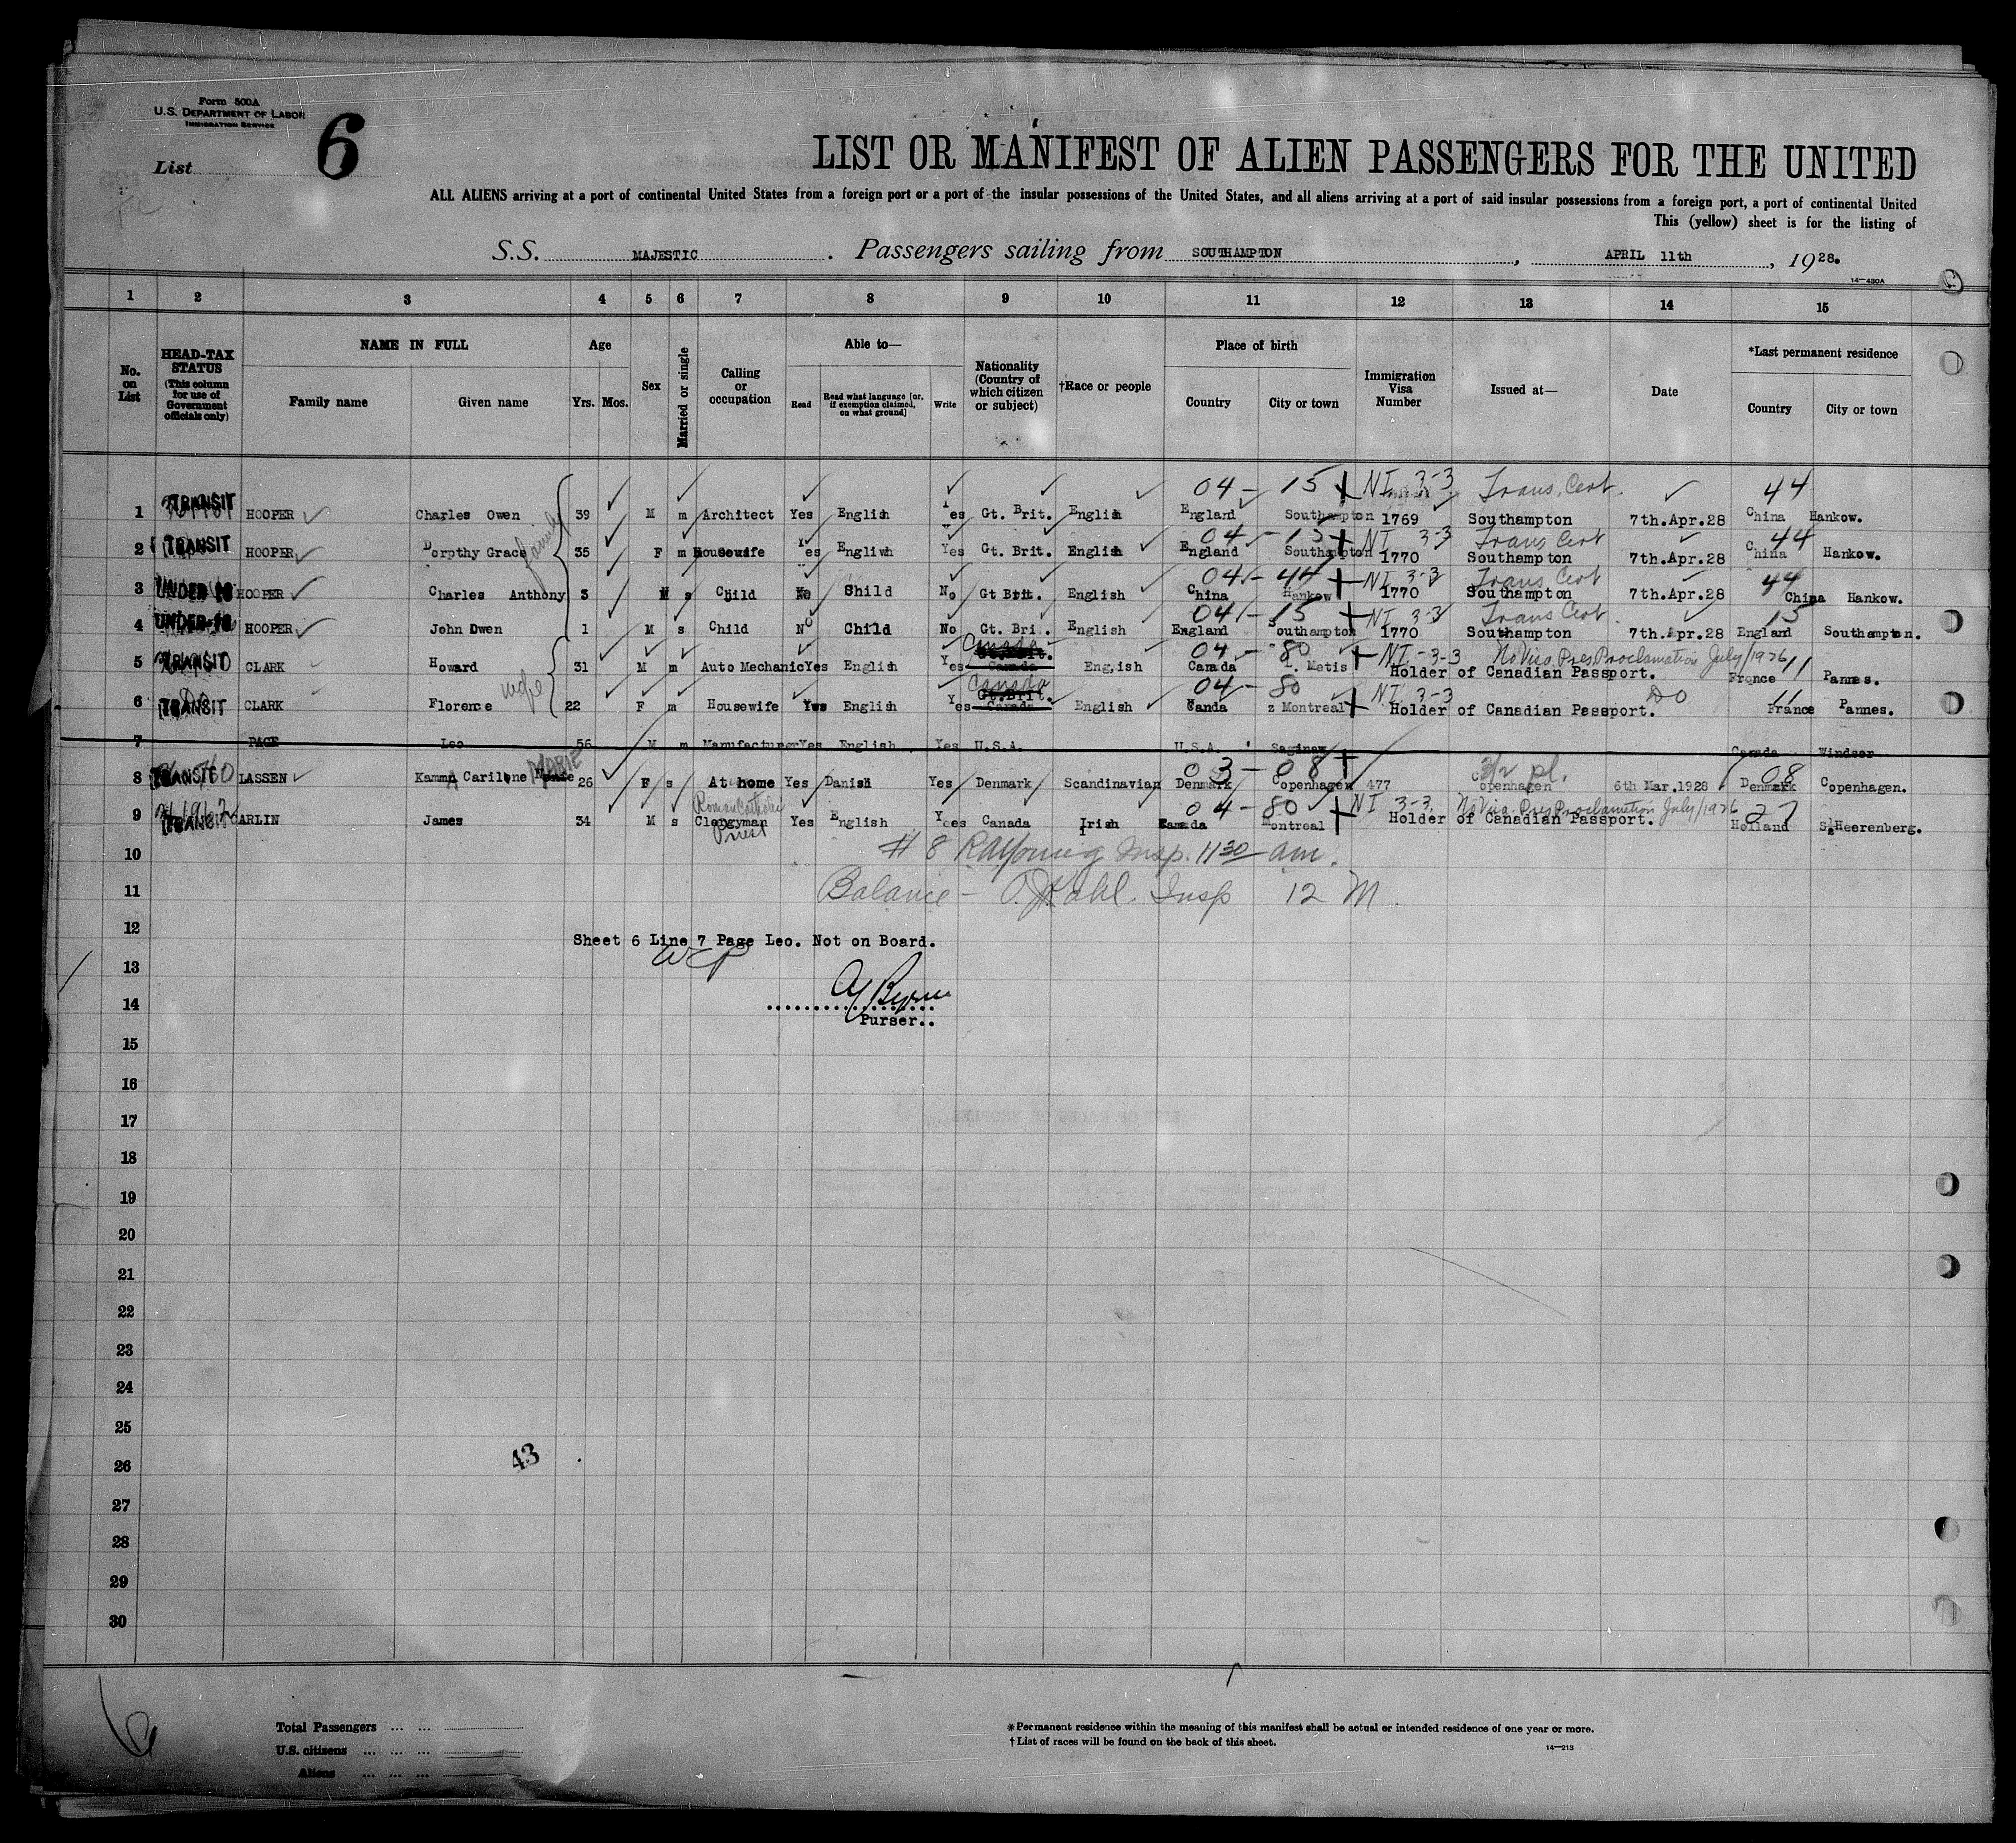 Form 500A
U.S. DEPARTMENT OF LABOR
IMMIGRATION SERVICE
List 6
LIST OR MANIFEST OF ALIEN PASSENGERS FOR THE UNITED
ALL ALIENS arriving at a port of continental United States from a foreign port or a port of the insular possessions of the United States, and all aliens arriving at a port of said insular possessions from a foreign port, a port of continental United
This (yellow) sheet is for the listing of
S.S. MAJESTIC . Passengers sailing from SOUTHAMPTON , APRIL 11th , 1928.
14—430A
1 2 3 4 5 6 7 8 9 10 11 12 13 14 15
No. on List
HEAD-TAX STATUS (This column for use of Government officials only)
NAME IN FULL
Family name Given name
Age
Yrs. Mos.
Sex
Married or single
Calling or occupation
Able to—
Read Read what language [or, if exemption claimed, on what ground] Write
Nationality (Country of which citizen or subject)
†Race or people
Place of birth
Country City or town
Immigration Visa Number
Issued at—
Date
*Last permanent residence
Country City or town
04 - 15 NI 3-3 Trans. Cert. 44
1 TRANSIT HOOPER Charles Owen 39 M m Architect Yes English Yes Gt. Brit. English England Southampton 1769 Southampton 7th.Apr.28 China Hankow.
family
04 - 15 NI 3-3 Trans Cert 44
2 TRANSIT HOOPER Dorpthy Grace 35 F m Housewife Yes Engliwh Yes Gt. Brit. English England Southampton 1770 Southampton 7th.Apr.28 China Hankow.
04 - 44 NI 3-3 Trans. Cert 44
3 UNDER 16 HOOPER Charles Anthony 3 M s Child No Child No Gt Brit. English China Hankow 1770 Southampton 7th.Apr.28 China Hankow.
04 - 15 NI 3-3 Trans Cert. 15
4 UNDER 16 HOOPER John Owen 1 M s Child No Child No Gt. Bri.. English England Southampton 1770 Southampton 7th.Apr.28 England Southampton.
Canada 04 - 80 NI-3-3 No Visa Pres. Proclamation July/1926 11
5 TRANSIT CLARK Howard 31 M m Auto Mechanic Yes English Yes Gt.Brit. Canada Eng,ish Canada L. Metis Holder of Canadian Passport. France Pannes.
wife
Canada 04 - 80 NI 3-3 DO 11
6 TRANSIT CLARK Florence 22 F m Housewife Yes English Yes Gt.Brit. Canada English Canda z Montreal Holder of Canadian Passport. France Pannes.
7 PAGE Leo 56 M m Manufacturer Yes English Yes U.S.A. U.S.A. Saginaw Canada Windsor
MARIE 03 - 08 3/2 pl. 08
8 TRANSIT LASSEN Kamma Carilone 26 F s At home Yes Danish Yes Denmark Scandinavian Denmark Copenhagen 477 Copenhagen 6th Mar.1928 Denmark Copenhagen.
Roman Catholic 04 - 80 NI 3-3. No Visa. Pres Proclamation July/1926 27
9 TRANSIT CARLIN James 34 M s Clergyman Yes English Yes Canada Irish Canada Montreal Holder of Canadian Passport. Holland Heerenberg.
Priest
10 # 8 RAYoung Insp. 11 30 am.
11 Balance - Insp 12 M.
12 Sheet 6 Line 7 Page Leo. Not on Board.
13
14
Purser..
15
16
17
18
19
20
21
22
23
24
25
26 43
27
28
29
30
6
Total Passengers
U.S. citizens
Aliens
*Permanent residence within the meaning of this manifest shall be actual or intended residence of one year or more.
†List of races will be found on the back of this sheet.
14—213